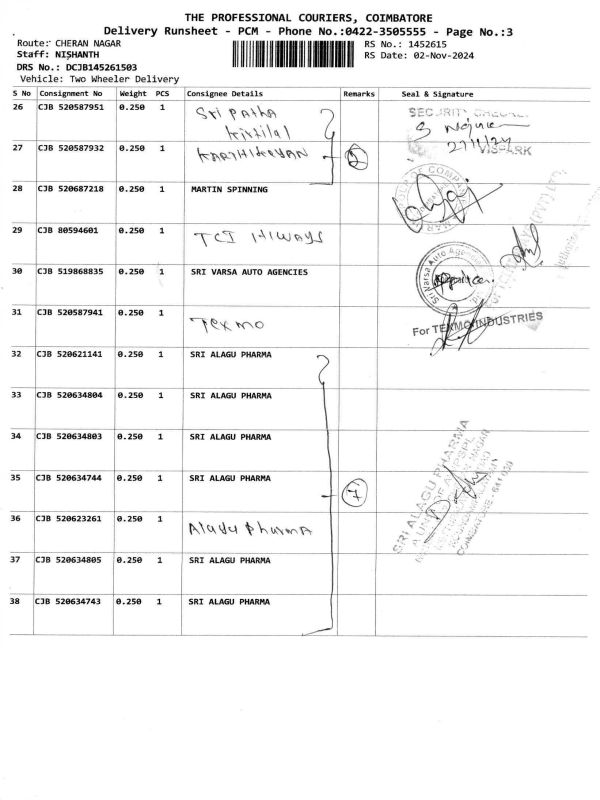 THE PROFESSIONAL COURIERS, COIMBATORE
Delivery Runsheet - PCM - Phone No.:0422-3505555 - Page No.:3
Route: CHERAN NAGAR
RS No.: 1452615
Staff: NISHANTH
RS Date: 02-Nov-2024
DRS No.: DCJB145261503
Vehicle: Two Wheeler Delivery
S No Consignment No Weight PCS Consignee Details Remarks Seal & Signature
26 CJB 520587951 0.250 1 Sri Patha
SECURITY
27 CJB 520587932 0.250 1 KARTHIKEYAN 2
28 CJB 520687218 0.250 1 MARTIN SPINNING
29 CJB 80594601 0.250 1 TCI HIWAYS
30 CJB 519868835 0.250 1 SRI VARSA AUTO AGENCIES
Sri Varsa Auto Agencies
31 CJB 520587941 0.250 1 Texmo
For TEXMO INDUSTRIES
32 CJB 520621141 0.250 1 SRI ALAGU PHARMA
33 CJB 520634804 0.250 1 SRI ALAGU PHARMA
34 CJB 520634803 0.250 1 SRI ALAGU PHARMA
35 CJB 520634744 0.250 1 SRI ALAGU PHARMA 7
SRI ALAGU PHARMA
COIMBATORE
36 CJB 520623261 0.250 1 Alagu Pharma
37 CJB 520634805 0.250 1 SRI ALAGU PHARMA
38 CJB 520634743 0.250 1 SRI ALAGU PHARMA